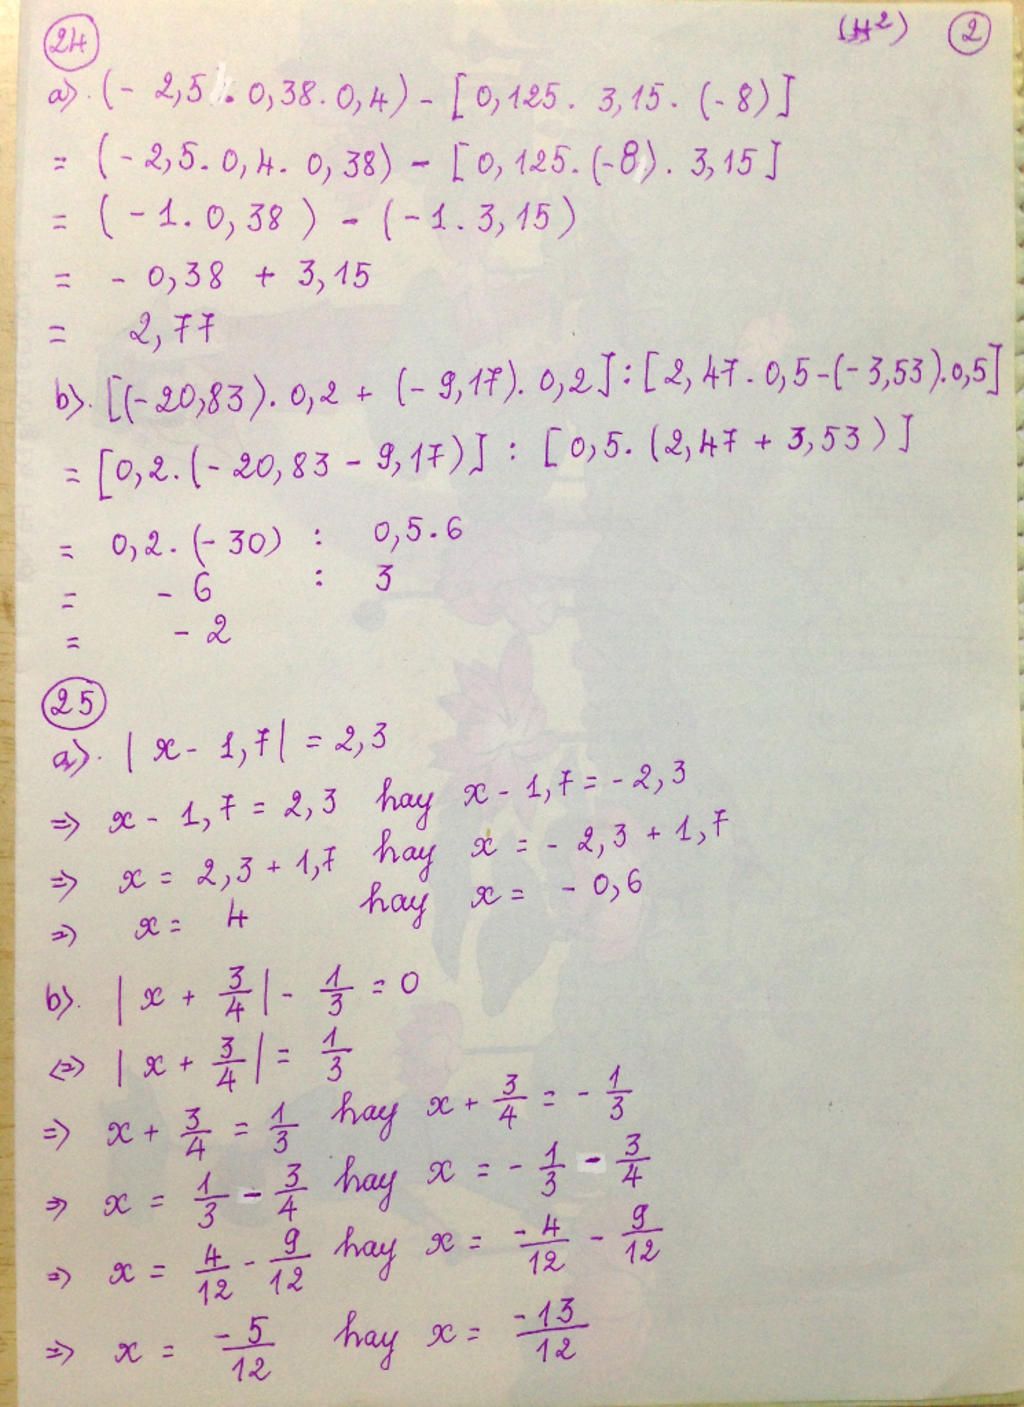 (H²) 2
24
a). (- 2,5 . 0,38. 0,4) - [0,125. 3,15. (- 8)]
= (- 2,5. 0,4. 0,38) - [0,125. (-8). 3,15]
= (- 1. 0,38) - (- 1. 3,15)
= - 0,38 + 3,15
= 2,77
b). [(-20,83). 0,2 + (- 9,17). 0,2] : [2,47. 0,5 - (- 3,53). 0,5]
= [0,2. (- 20,83 - 9,17)] : [0,5. (2,47 + 3,53)]
= 0,2. (- 30) : 0,5. 6
= - 6 : 3
= - 2
25
a). | x - 1,7| = 2,3
=> x - 1,7 = 2,3 hay x - 1,7 = - 2,3
=> x = 2,3 + 1,7 hay x = - 2,3 + 1,7
=> x = 4 hay x = - 0,6
b). | x + 3/4 | - 1/3 = 0
<=> | x + 3/4 | = 1/3
=> x + 3/4 = 1/3 hay x + 3/4 = - 1/3
=> x = 1/3 - 3/4 hay x = - 1/3 - 3/4
=> x = 4/12 - 9/12 hay x = -4/12 - 9/12
=> x = -5/12 hay x = -13/12